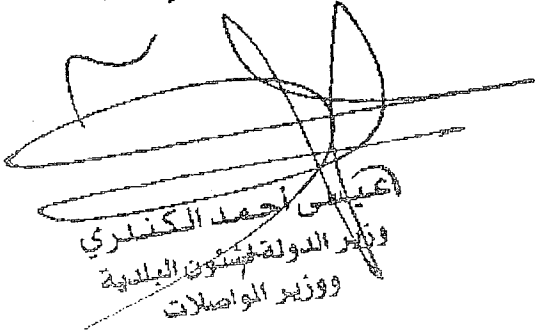 عيسى أحمد الكندري
وزير الدولة لشئون البلدية
ووزير المواصلات